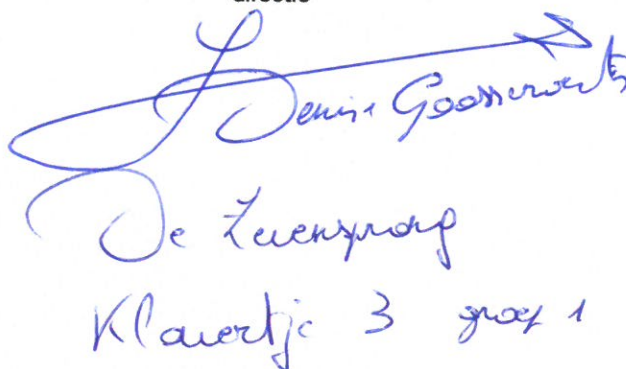 directie
Denise Goossenaerts
De Zevensprong
Klavertje 3 groep 1